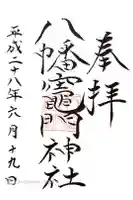 奉拝
八幡竈門神社
平成二十八年六月十九日